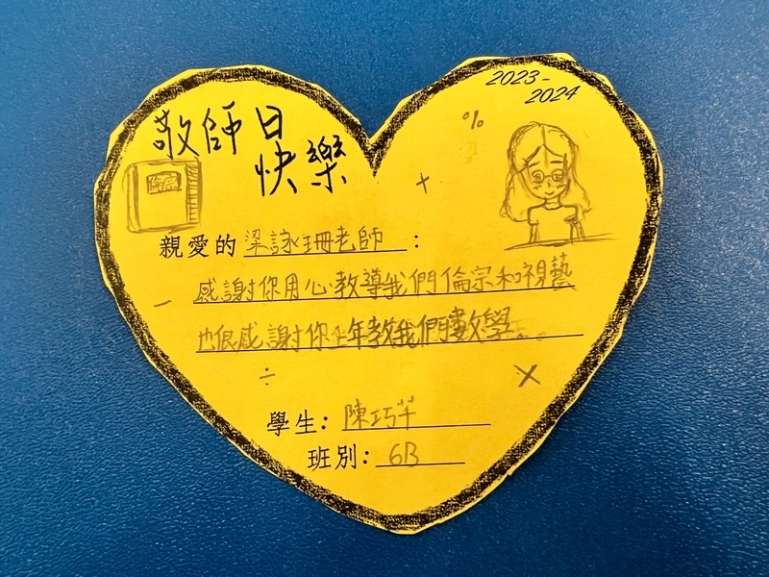 2023-
2024
敬師日
快樂
%
+
親愛的 梁詠珊老師 :
感謝你用心教導我們倫宗和視藝
也很感謝你上年教我們數學。
-
÷
×
學生: 陳巧芊
班別: 6B